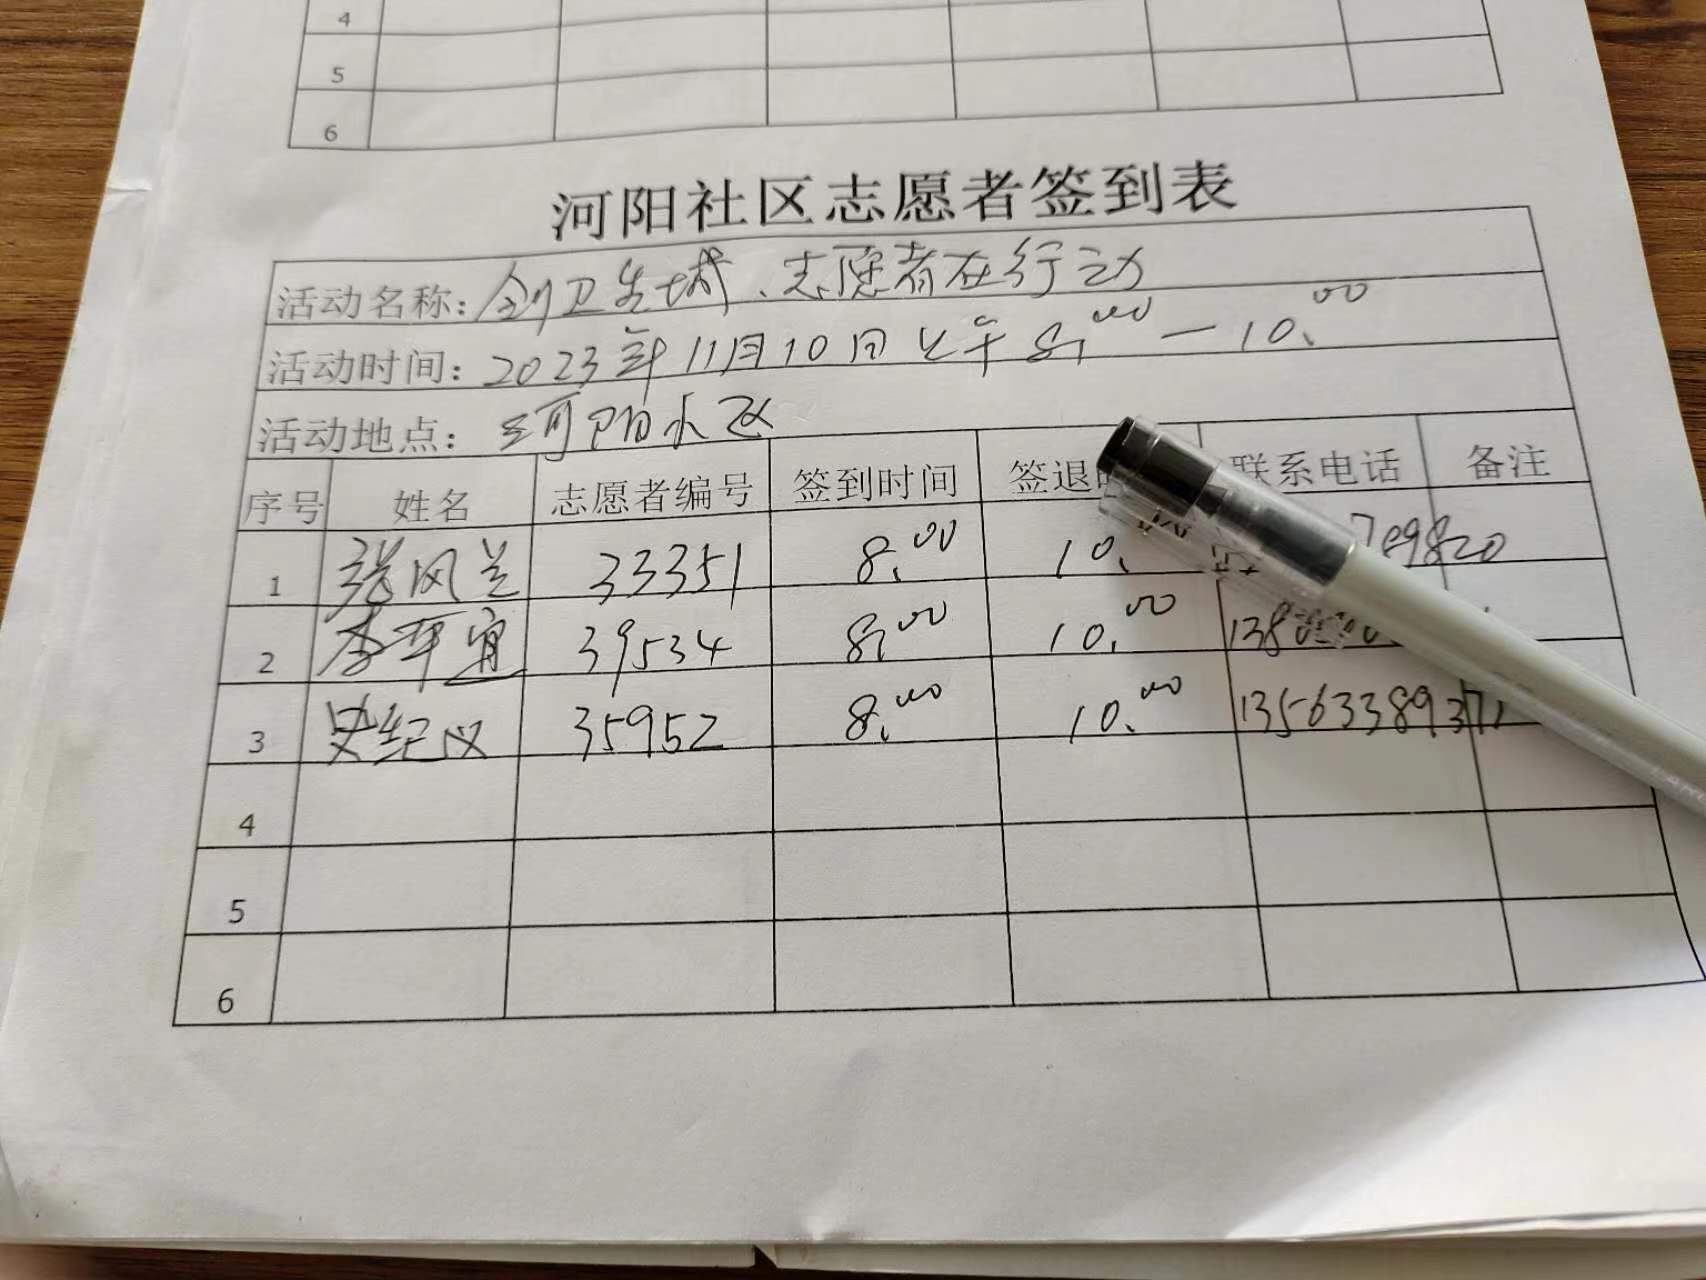 4
5
6
河阳社区志愿者签到表
活动名称: 创卫生城、志愿者在行动
活动时间: 2023年11月10日上午8:00—10:00
活动地点: 河阳小区
序号 姓名 志愿者编号 签到时间 签退 联系电话 备注
1 张风兰 33351 8:00 10: 709820
2 李平宜 39534 8:00 10:00 138
3 史纪义 35952 8:00 10:00 135633893
4
5
6